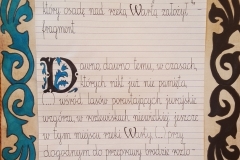 który osadę nad rzeką Wartą założył
fragment
Dawno, dawno temu, w czasach,
których nikt już nie pamięta,
wśród lasów porastających jurajskie
wzgórza, w rozlewiskach, niewielkiej jeszcze
w tym miejscu rzeki Warty, przy
dogodnym do przeprawy brodzie